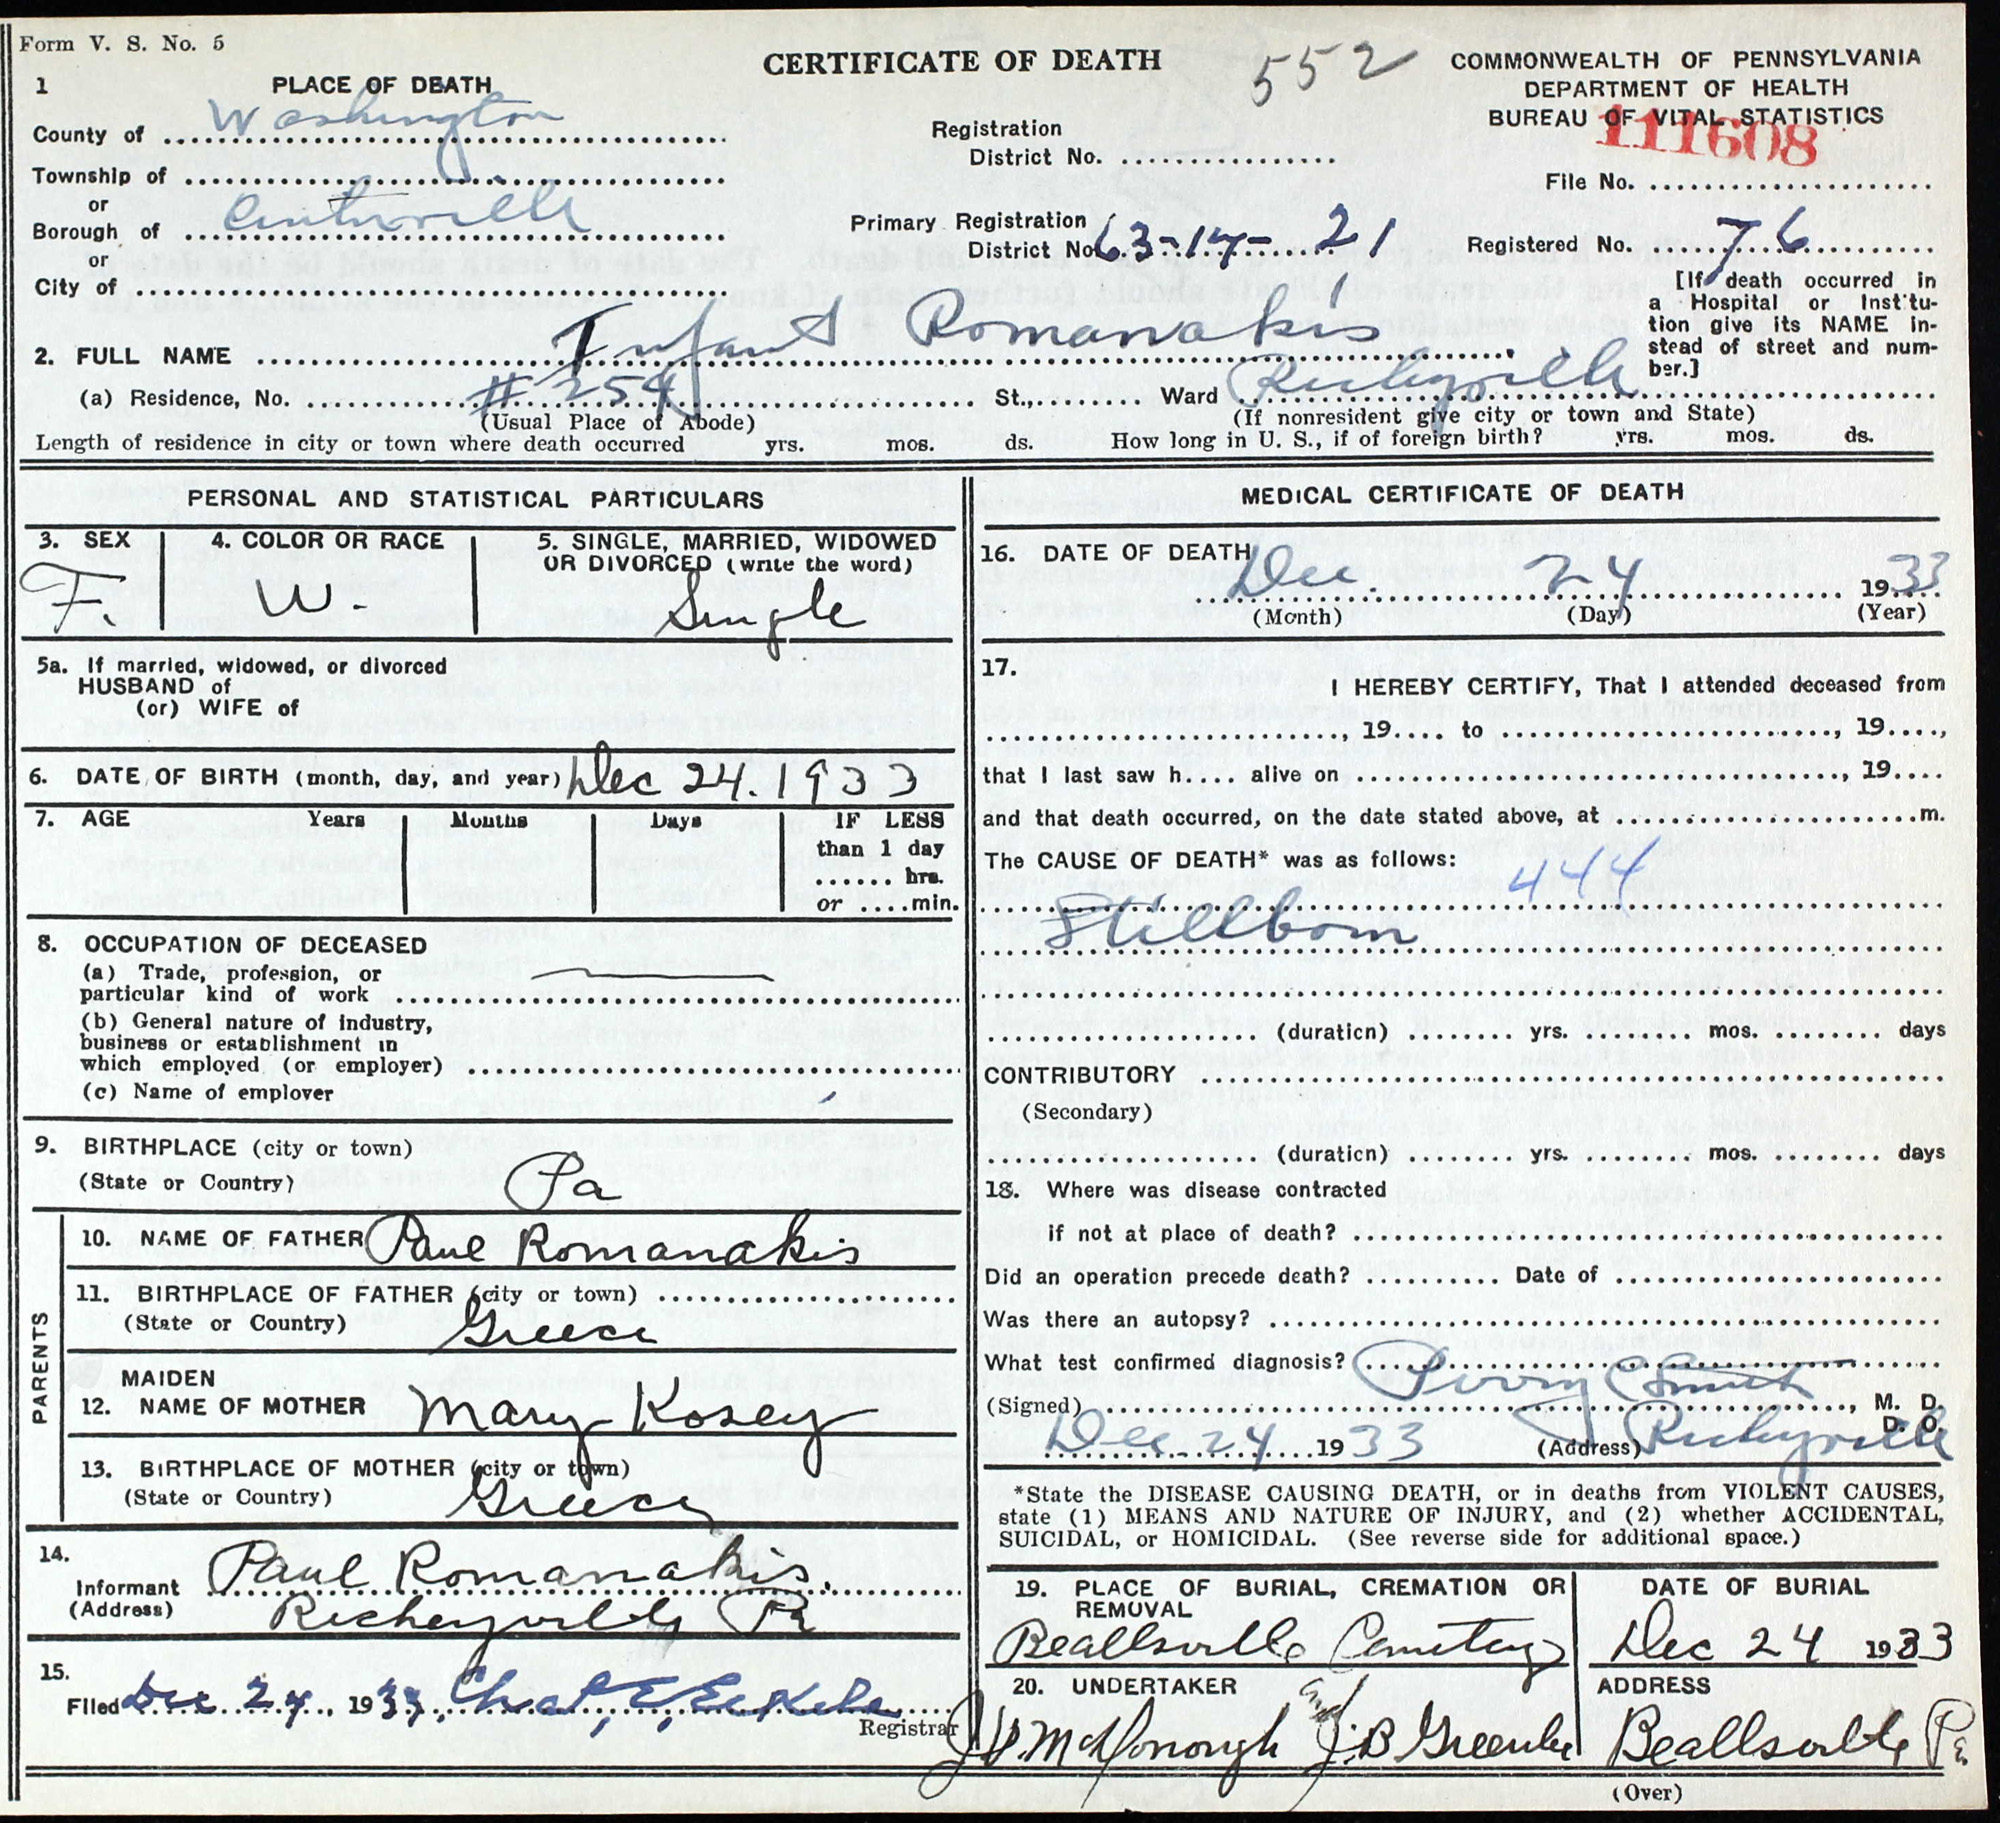 Form V. S. No. 5
CERTIFICATE OF DEATH
552
COMMONWEALTH OF PENNSYLVANIA
DEPARTMENT OF HEALTH
BUREAU OF VITAL STATISTICS
111608
File No.
1 PLACE OF DEATH
County of Washington
Township of
or
Borough of Centerville
or
City of
Registration
District No.
Primary Registration
District No. 63-17-21
Registered No. 76
[If death occurred in
a Hospital or Institu-
tion give its NAME in-
stead of street and num-
ber.]
2. FULL NAME Infant Romanakis
(a) Residence, No. #254 St., Ward Richeyville
(Usual Place of Abode) (If nonresident give city or town and State)
Length of residence in city or town where death occurred yrs. mos. ds. How long in U. S., if of foreign birth? yrs. mos. ds.
PERSONAL AND STATISTICAL PARTICULARS
3. SEX 4. COLOR OR RACE 5. SINGLE, MARRIED, WIDOWED
OR DIVORCED (write the word)
F. W- Single
5a. If married, widowed, or divorced
HUSBAND of
(or) WIFE of
6. DATE OF BIRTH (month, day, and year) Dec 24. 1933
7. AGE Years Months Days IF LESS
than 1 day
hrs.
or min.
8. OCCUPATION OF DECEASED
(a) Trade, profession, or
particular kind of work
(b) General nature of industry,
business or establishment in
which employed (or employer)
(c) Name of employer
9. BIRTHPLACE (city or town)
(State or Country) Pa
PARENTS
10. NAME OF FATHER Paul Romanakis
11. BIRTHPLACE OF FATHER (city or town)
(State or Country) Greece
MAIDEN
12. NAME OF MOTHER Mary Kosey
13. BIRTHPLACE OF MOTHER (city or town)
(State or Country) Greece
14.
Informant Paul Romanakis.
(Address) Richeyville Pa
15.
Filed Dec 24, 1933, Chas. E. Registrar
MEDICAL CERTIFICATE OF DEATH
16. DATE OF DEATH Dec 24 1933
(Month) (Day) (Year)
17.
I HEREBY CERTIFY, That I attended deceased from
, 19.... to , 19....,
that I last saw h.... alive on , 19....
and that death occurred, on the date stated above, at m.
The CAUSE OF DEATH* was as follows: 444
Stillborn
(duration) yrs. mos. days
CONTRIBUTORY
(Secondary)
(duration) yrs. mos. days
18. Where was disease contracted
if not at place of death?
Did an operation precede death? Date of
Was there an autopsy?
What test confirmed diagnosis?
(Signed) Smith, M. D.
D. O.
Dec 24 1933 (Address) Richeyville
*State the DISEASE CAUSING DEATH, or in deaths from VIOLENT CAUSES,
state (1) MEANS AND NATURE OF INJURY, and (2) whether ACCIDENTAL,
SUICIDAL, or HOMICIDAL. (See reverse side for additional space.)
19. PLACE OF BURIAL, CREMATION OR
REMOVAL
Beallsville Cemetery
DATE OF BURIAL
Dec 24 1933
20. UNDERTAKER
McDonough and J. B. Greenlee
ADDRESS
Beallsville Pa
(Over)